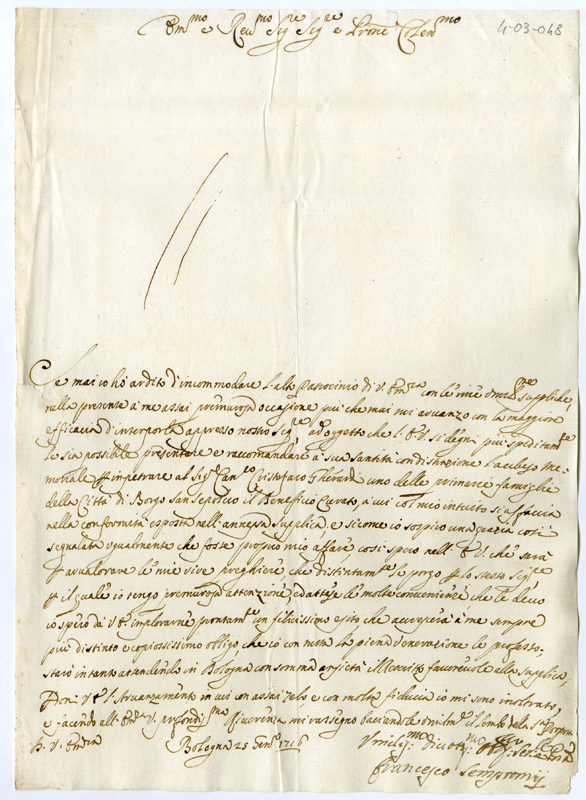 Em.mo e Rev.mo Sig.re Sig.re e P.rone Colen.mo
4-03-048
Se mai io hò ardito d'incommodare l'alto Patrocinio di V. Em.za con le mie Umil.me suppliche,
nella presente à me assai premurosa occasione più che mai mi avvanzo con la maggiore
efficacia d'interporle appresso nostro Sig.re, ad oggetto che l'E.V. si degni più speditam.te
le sia possibile presentare e raccomandare à sua santità con distinzione l'accluso me-
moriale per impetrare al Sig.r Can.co Cristofaro Gherardi uno delle primarie famiglie
della Città di Borgo San Sepolcro il Beneficio Curato, à cui col mio intuito si affaccia
nella conformità esposta nell'annessa supplica, e sicome io sospiro una grazia così
segnalata ugualmente che fosse proprio mio affare così spero nell' E.V. che sarà
per avvalorare le mie vive preghiere che distintam.te le porgo per lo stesso Sig.re
per il quale io tengo premurosa attenzione, ed attese le molte convenienze che le devo
io spero da V.E. implorarne prontam.te un felicissimo esito che accrescerà à me sempre
più distinto e copiosissimo obligo, che io con tutta la piena venerazione le professo,
starò in tanto attendendo in Bologna con somma ansietà il favorevole alla supplica,
in cui con assai zelo, e con molta fiducia io mi sono inoltrato,
e facendo all' Em.za V. profondiss.ma Riverenza mi rassegno baciandole umilm.te il lembo della S. Porpora
D. V. Em.za
Bologna 25 Gen.ro 1716
Umiliss.mo Divotiss.mo
Francesco Sempronij